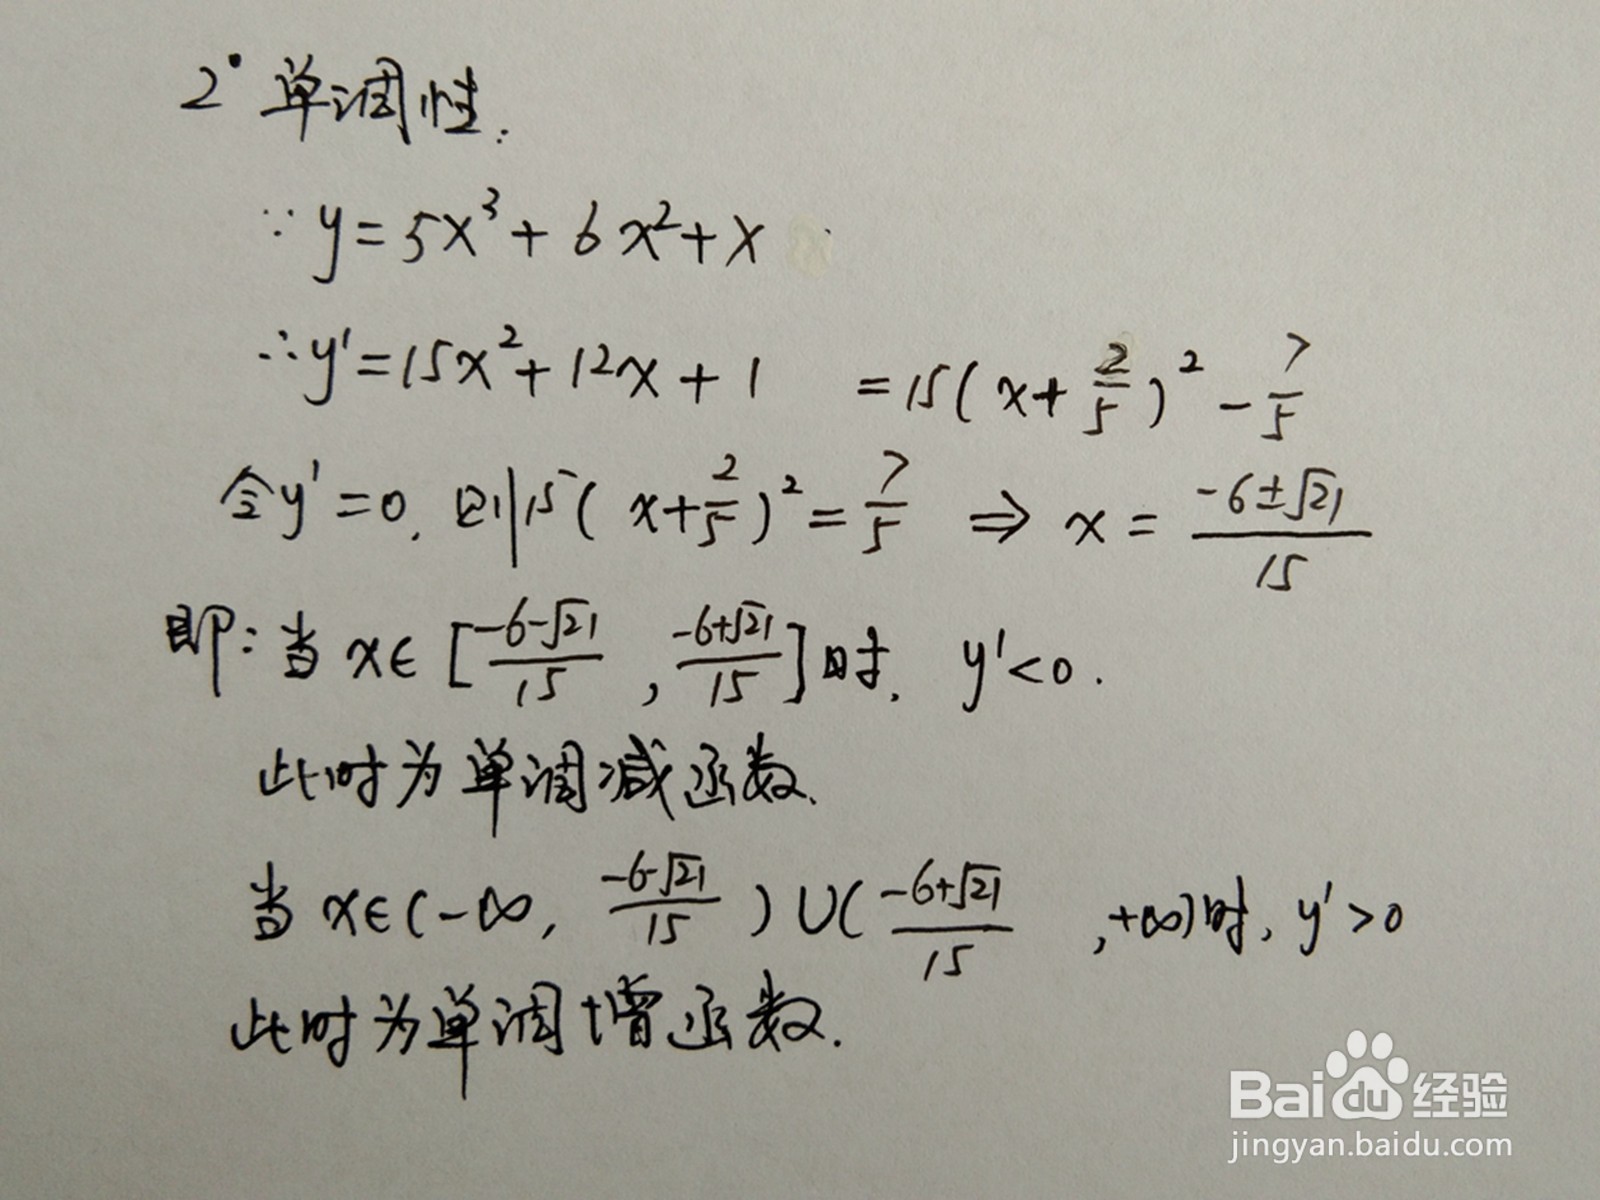 2° 单调性:
∵ y=5x³+6x²+x
∴ y'=15x²+12x+1 =15(x+2/5)²-7/5
令y'=0, 则15(x+2/5)²=7/5 ⇒ x=(-6±√21)/15
即: 当 x∈[(-6-√21)/15, (-6+√21)/15]时, y'<0.
此时为单调减函数.
当 x∈(-∞, (-6-√21)/15)∪((-6+√21)/15, +∞)时, y'>0
此时为单调增函数.
Baidu经验
jingyan.baidu.com